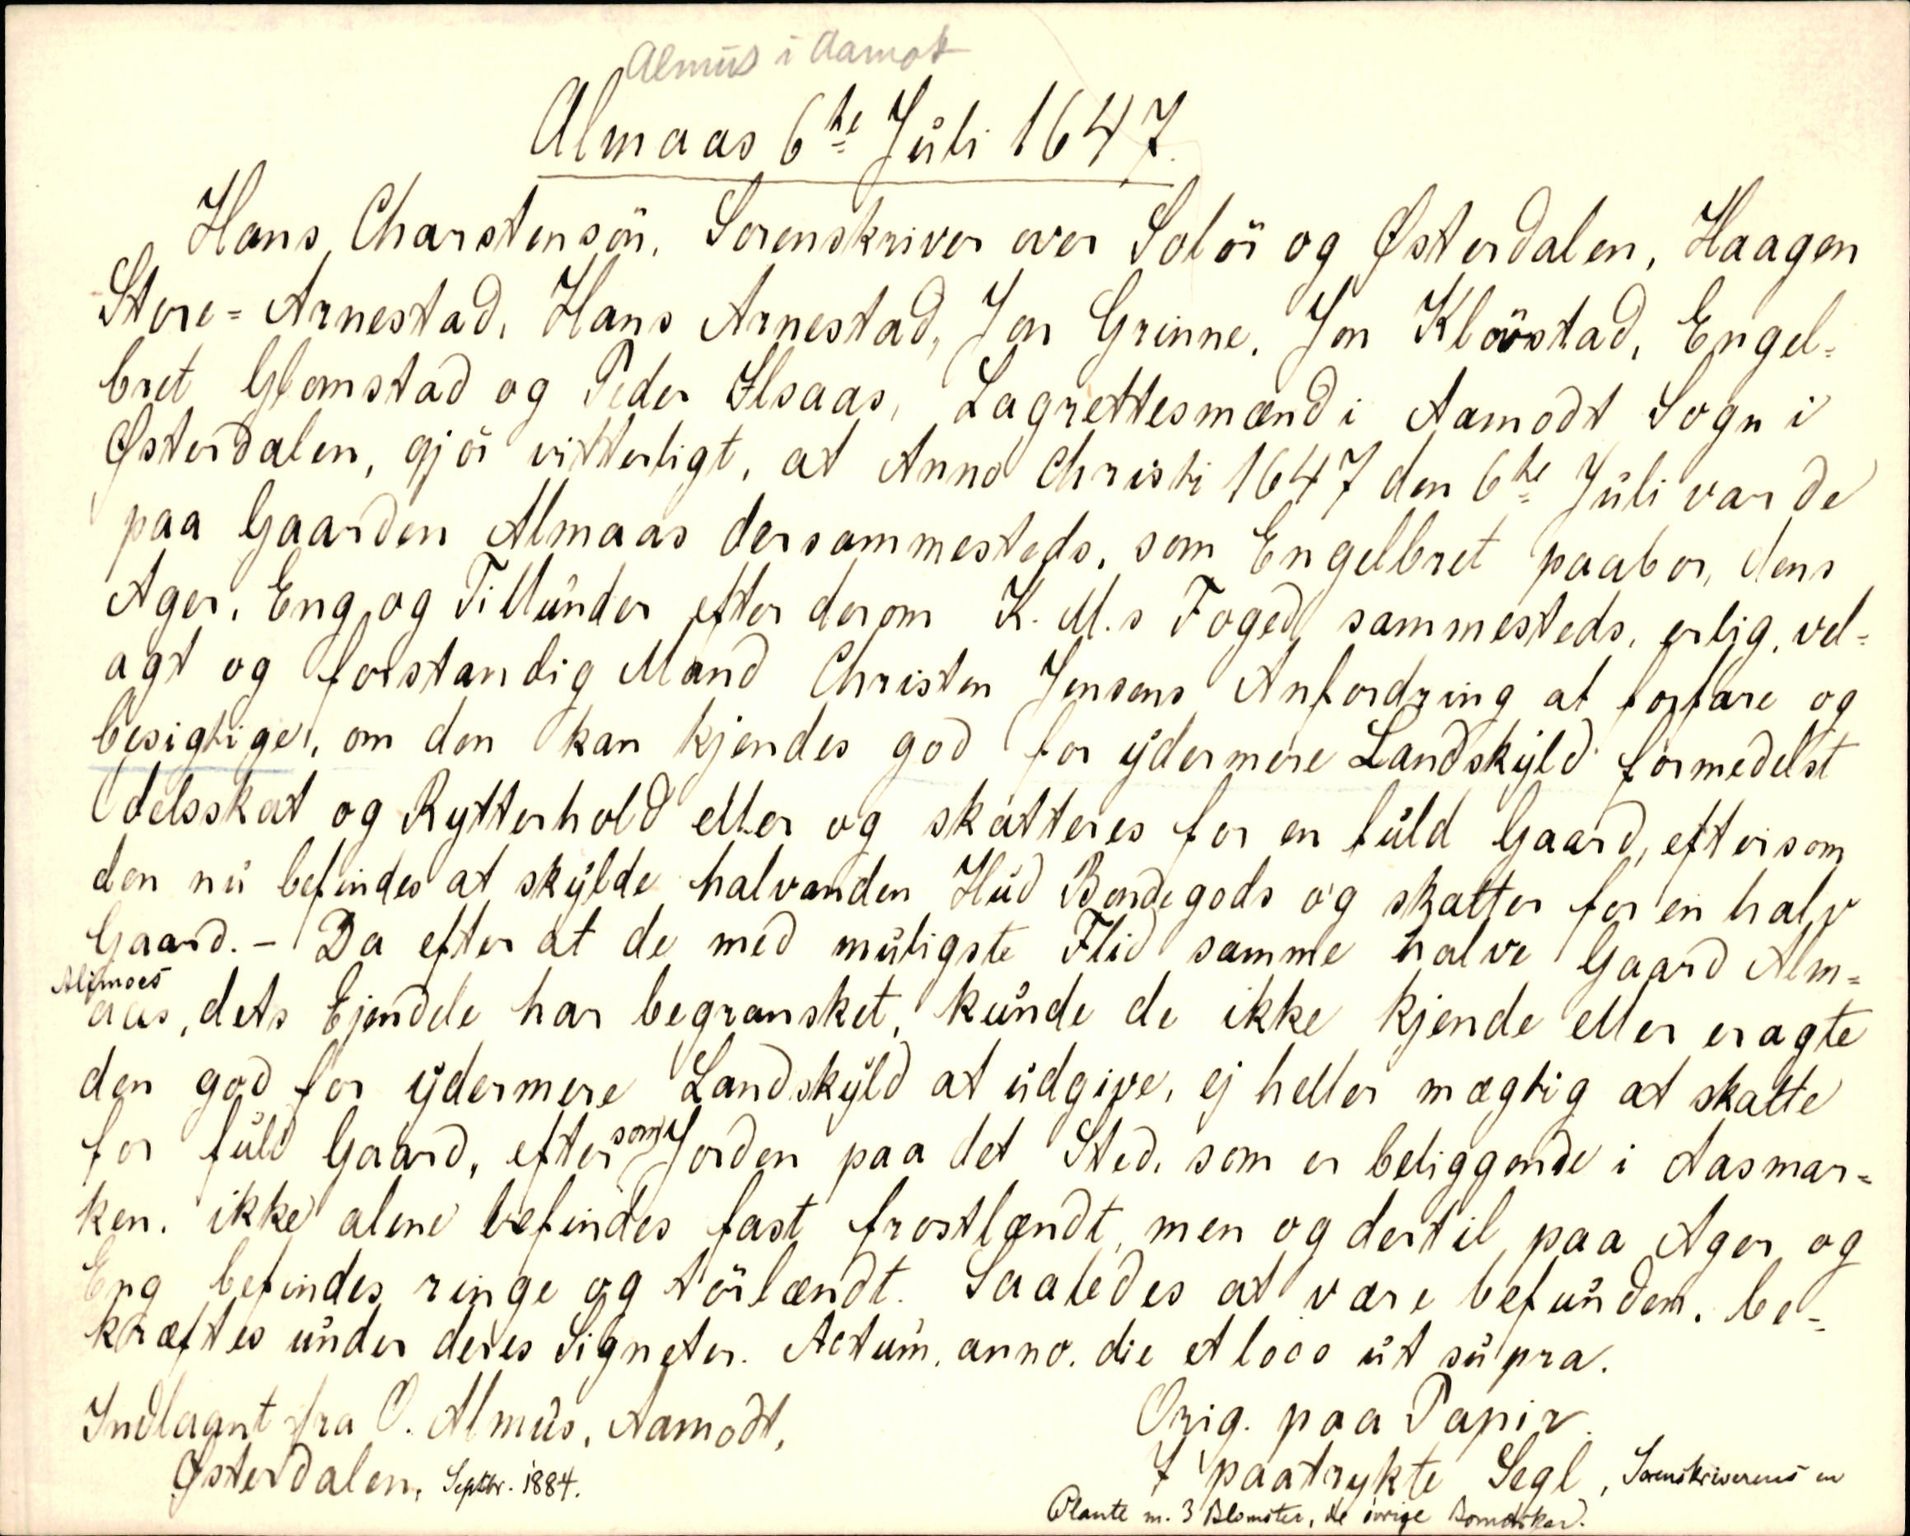 Almus i Aamot
Almaas 6te Juli 1647.
Hans Charstensön, Sorenskriver over Solör og Østerdalen, Haagen
Store-Arnestad, Hans Arnestad, Jon Grinne, Jon Klövstad, Engel-
bret Glomstad og Peder Ilsaas, Lagrettesmænd i Aamodt Sogn i
Østerdalen, gjör vitterligt, at Anno Christi 1647 den 6te Juli var de
paa Gaarden Almaas dersammesteds, som Engelbret paabor, dens
Ager, Eng og Tillunder efter derom K. M.s Foged sammesteds, erlig, vel-
agt og forstandig Mand Christen Jensens Anfordring at forfare og
besigtige, om den kan kjendes god for ydermere Landskyld formedelst
Odelsskat og Rytterhold eller og skatteres for en fuld Gaard, eftersom
den nu befindes at skylde halvanden Hud Bondegods og skatter for en halv
Gaard. - Da efter at de med muligste Flid samme halve Gaard Alm-
Alimoes
aas, dets Ejendele har begransket, kunde de ikke kjende eller eragte
den god for ydermere Landskyld at udgive, ej heller mægtig at skatte
for fuld Gaard, eftersom Jorden paa det Sted, som er beliggende i Aasmar-
ken, ikke alene befindes fast frostlændt, men og dertil paa Ager og
Eng befindes ringe og törlændt. Saaledes at være befunden, be-
kræftes under deres Signeter. Actum, anno, die et loco ut supra.
Indlaant fra O. Almus, Aamodt,
Østerdalen, Septbr. 1884.
Orig. paa Papir.
7 paatrykte Segl, Sorenskriverens en
Plante m. 3 Blomster, de övrige Bomærker.